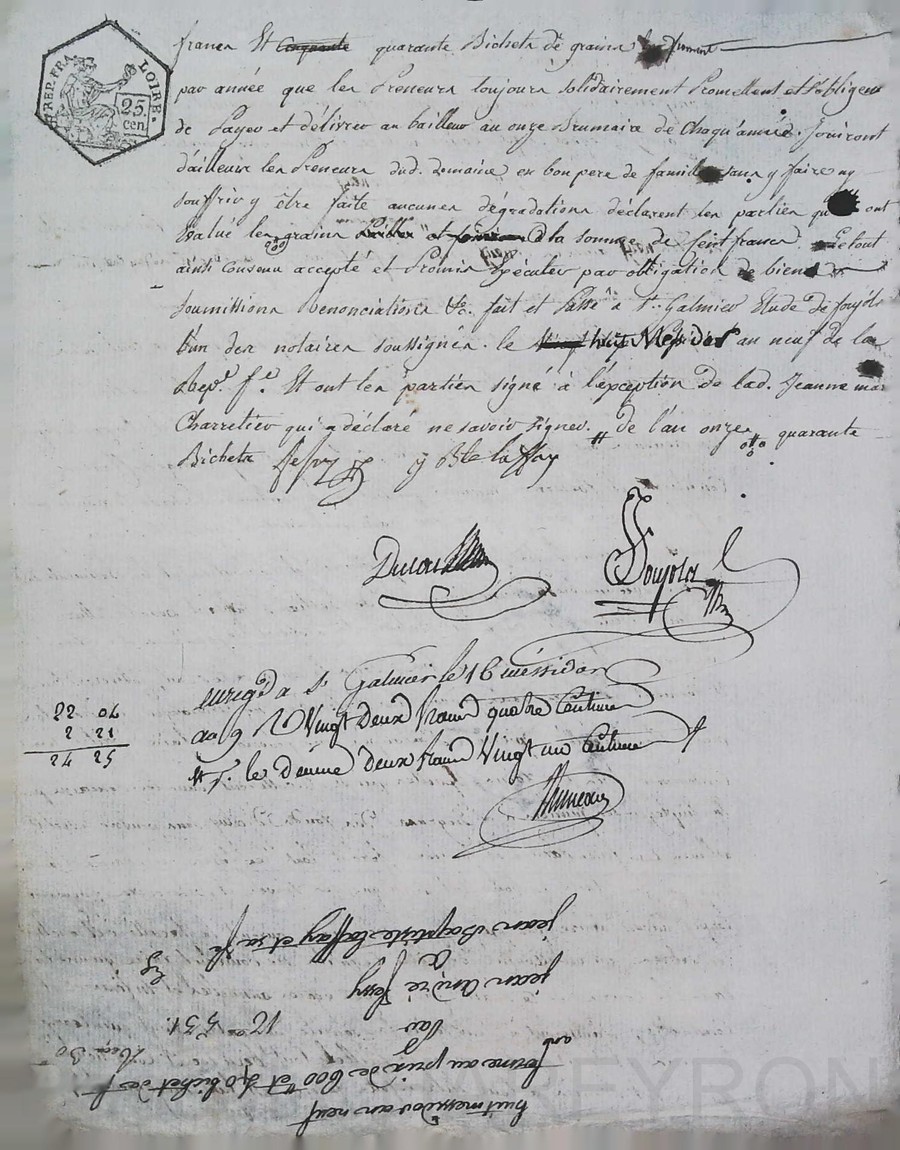 REP. FRA. LOIRE.
25.
cen.
francs Et Cinquante quarante Bichets de grains froment
par année que les Preneurs toujours solidairement Promettent et s'obligent
de Payer et délivrer au bailleur au onze Brumaire de Chaqu'année. Jouiront
d'ailleurs les Preneurs dud. domaine en bon pere de famille sans y faire ny
souffrir y être faite aucunes dégradations déclarent les parties qu ont
Evalué les grains à la somme de Cent francs. Le tout
ainsi Convenu accepté et Promis Exécuter par obligation de biens
soumissions Renonciations &c. fait et Passé à St. Galmier Etude de foujols
l'un des notaires soussignés. le huit Messidor au neuf de la
Rep.e f.e Et ont les parties signé à l'exception de lad. Jeanne mar
Charretier qui a déclaré ne savoir signer. # de l'an onze quarante
Bichets Jessy jB.te laffay
Foujols
enrige à St Galmier le 16 messidor
an 9 R Vingt deux francs quatre Centimes
# p. le déime deux francs Vingt un Centime
22 04
2 21
24 25
huit messidor an neuf
ferme au prix de 600 et 40 bichet de f
par
jean andré Jessy
à
jean Baptiste laffay et sa fe
12 = 531.